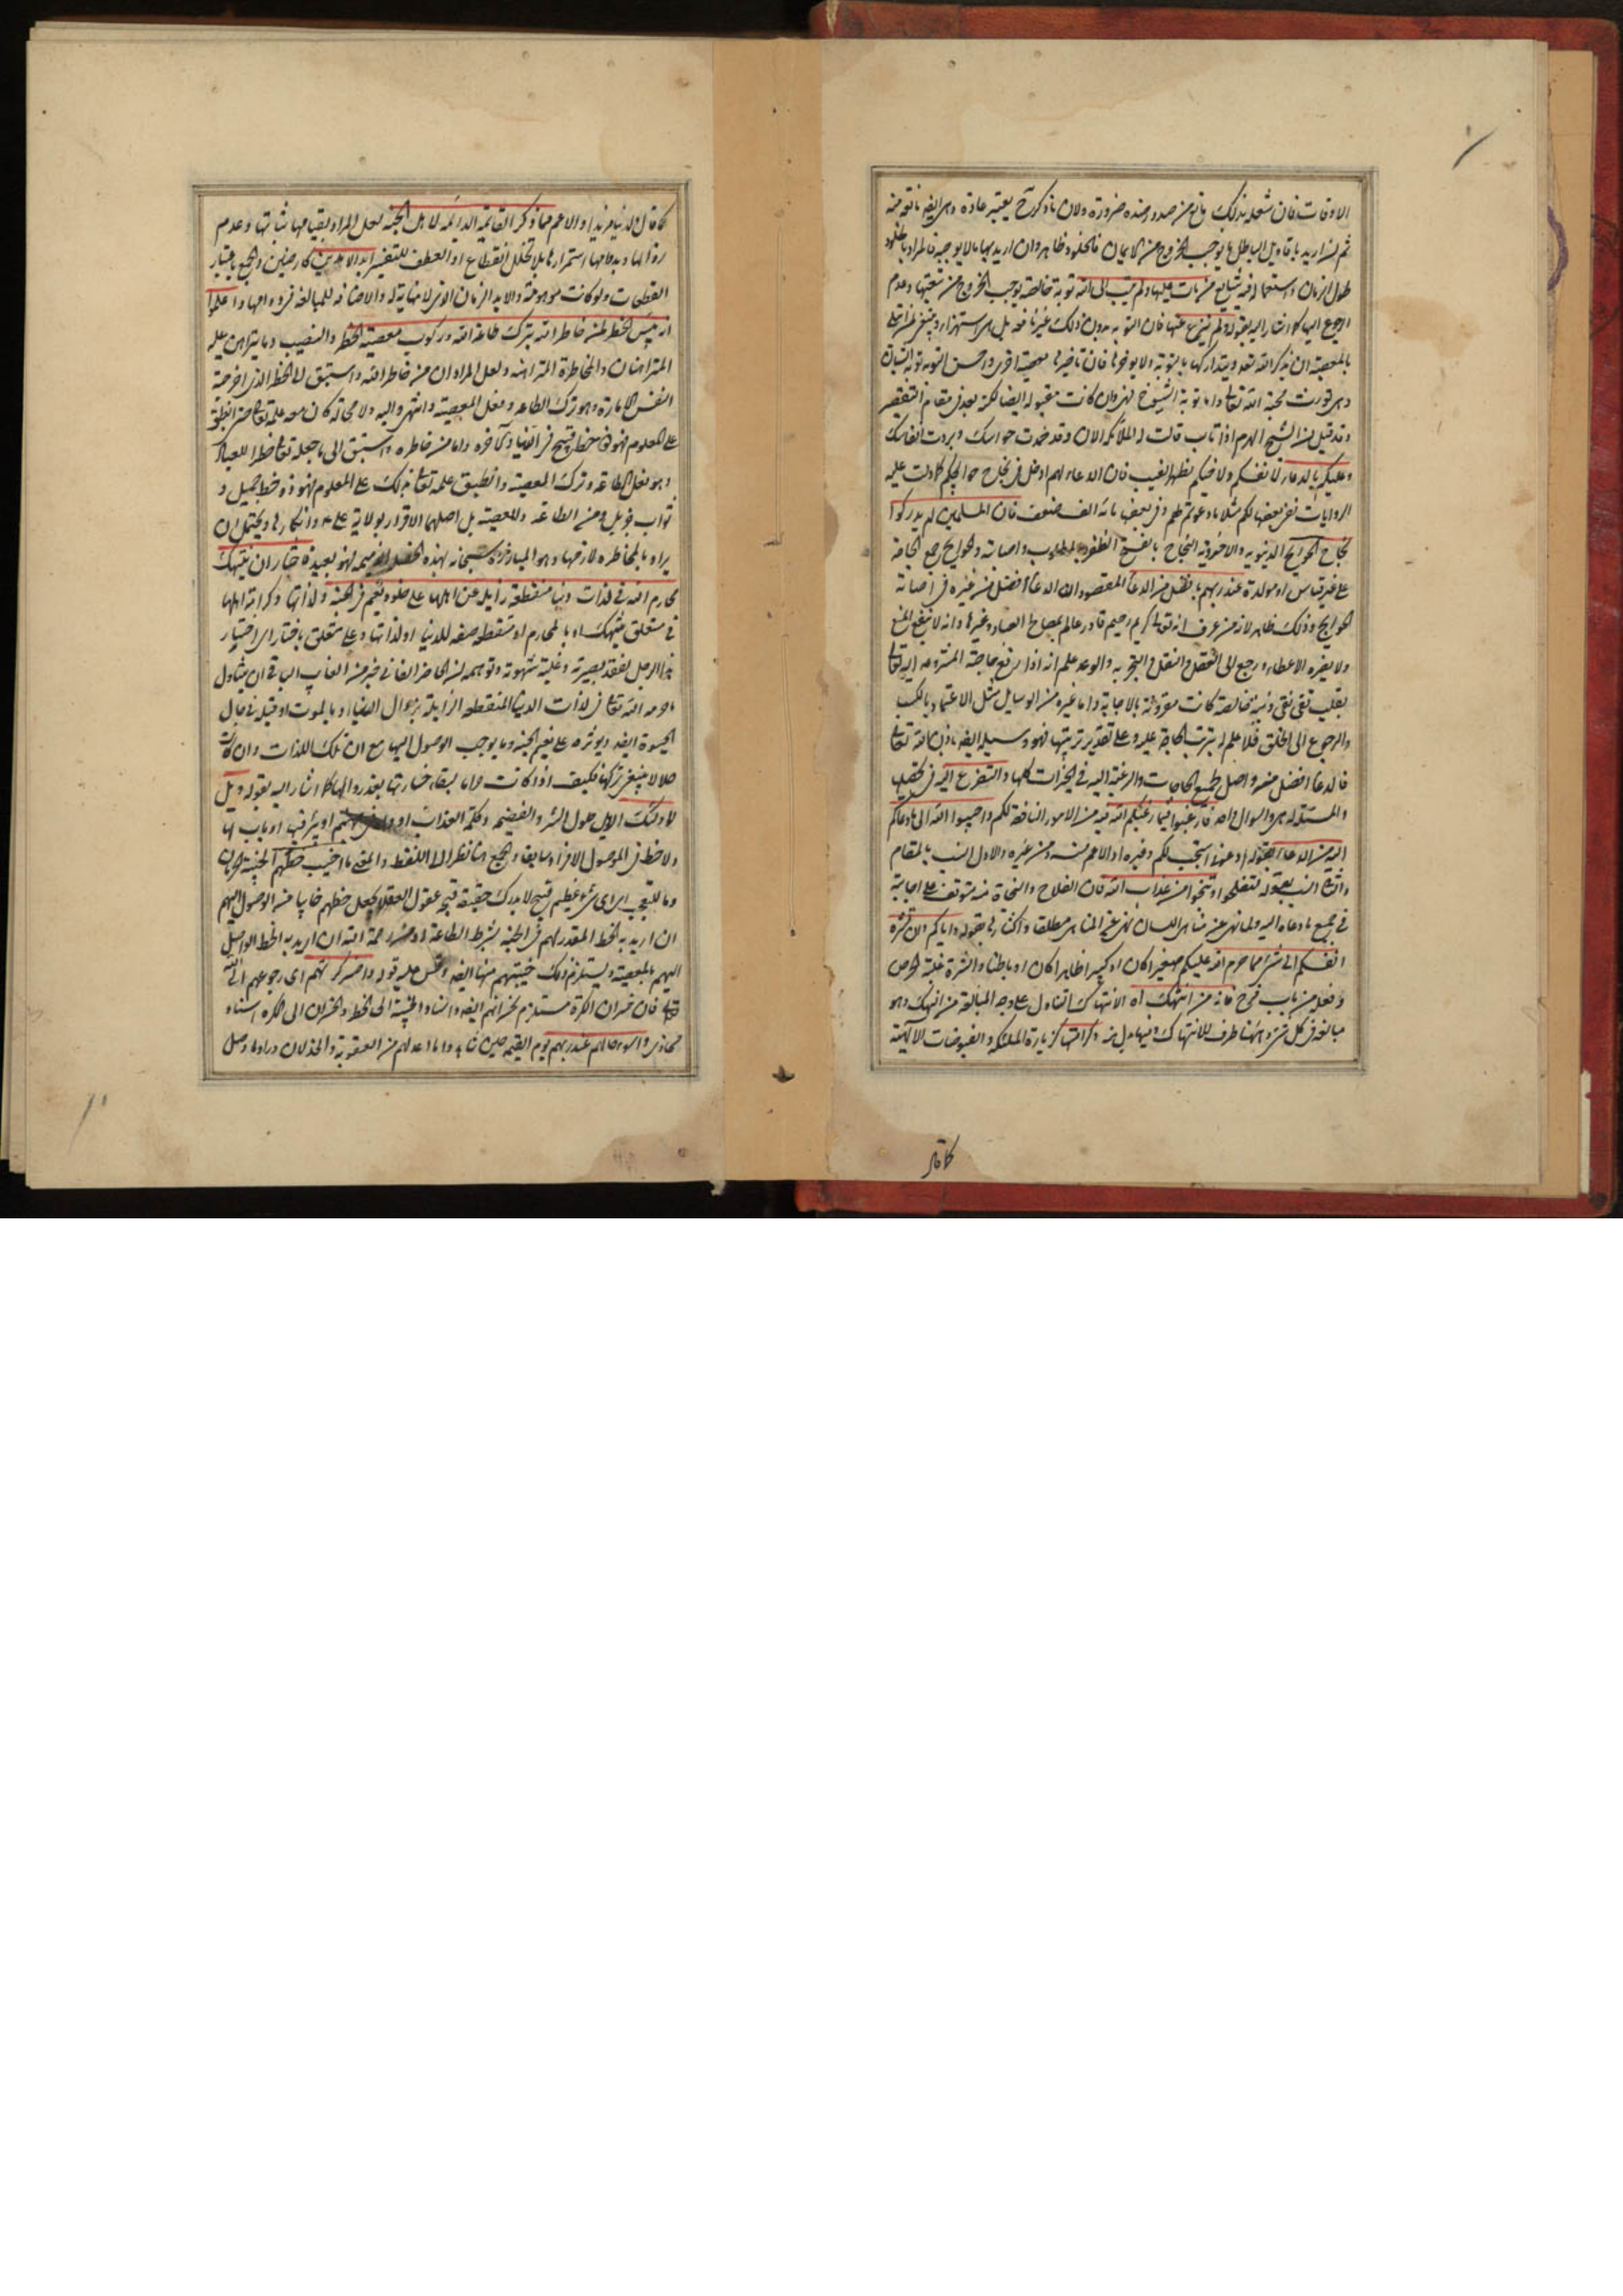 الاوقات فان شغله بذلك مانع من صدور ضده ضرورة ولان ما ذكر
ثم ان اريد باقاويل الباطل ما يوجب الخروج من الايمان فالخلود ظاهر وان اريد بها ما لا يوجبه فالمراد بالخلود
طول الزمان واستعماله فيه شايع من مات عليها ولم يتب الى الله توبة خالصة توجب الخروج من تبعتها وعدم
الرجوع اليها كما اشار اليه بقوله ولم ينزع عنها فان التوبة بدون ذلك غير نافعة بل هي استهزاء وينبغي لمن ابتلى
بالمعصية ان يذكر الله بعده ويتداركها بالتوبة ولا يؤخرها فان تأخيرها معصية اخرى واحسن التوبة توبة الشبان
وهي تورث محبة الله تعالى واما توبة الشيوخ فهي وان كانت مقبولة ايضا لكنه يعد في مقام التقصير
وقد قيل ان الشيخ الهرم اذا تاب قالت له الملائكة الان وقد خمدت حواسك وبردت انفاسك
وعليكم بالدعاء لانفسكم ولاخيكم بظهر الغيب فان الدعاء لهم ادخل في نجاح حوائجكم كما دلت عليه
الروايات ففي بعضها لكم مثل ما دعوتم لهم وفي بعضها مائة الف ضعف فان المسلمين لم يدركوا
نجاح الحوائج الدنيوية والاخروية النجاح بالفتح الظفر بالمطلوب واصابته والحوائج جمع الحاجة
على غير قياس او مولدة عند ربهم بافضل من الدعاء المقصود ان الدعاء افضل من غيره في اصابة
الحوائج وذلك ظاهر لان من عرف انه تعالى كريم رحيم قادر عالم بمصالح العباد وغيرها وانه لا ينفعه المنع
ولا يضره الاعطاء ورجع الى العقل والنقل والتجربة والوعد علم انه اذا رفع حاجته المشروعة اليه تعالى
بقلب تقي نقي ونية خالصة كانت مقرونة بالاجابة واما غيره من الوسايل مثل الاعتماد بالكسب
والرجوع الى الخلق فلا علم له بترتب الحاجة عليه وعلى تقدير ترتبها فهو وسيلة ايضا باذن الله تعالى
فالدعاء افضل منه واصل لجميع الحاجات والرغبة اليه في الخيرات كلها والتضرع اليه في تحصيلها
والمسئلة له هي والسوال واحد فارغبوا فيما رغبكم الله فيه من الامور النافعة لكم واجيبوا الله الى ما دعاكم
اليه من الدعاء بقوله ادعوني استجب لكم وغيره او الاعم منه ومن غيره والاول انسب بالمقام
والثاني انسب بقوله لتفلحوا وتنجوا من عذاب الله فان الفلاح والنجاة منه متوقف على اجابته
في جميع ما دعاه اليه ولما نهى عن مناهي اللسان نهى عن المناهي مطلقا واكثارها بقوله واياكم ان تشره
انفسكم الى شيء مما حرم الله عليكم صغيرا كان او كبيرا ظاهرا كان او باطنا والشره غلبة الحرص
وفعله من باب فرح فانه من انتهك اه الانتهاك التناول على وجه المبالغة من النهك وهو
مبالغة في كل شيء وههنا ظرف للانتهاك وفيها بدل منه وكرامتها كزيارة الملائكة والفيوضات الالهية
كما قال
كما قال ولدينا مزيد او الاعم مما ذكر القائمة الدائمة لاهل الجنة لعل المراد بقيامها ثباتها وعدم
زوالها وبدوامها استمرارها بلا تخلل انقطاع او العطف للتفسير ابد الابدين كارضين والجمع باعتبار
القطعات ولو كانت موهومة والابد الزمان الذي لا نهاية له والاضافة للمبالغة في دوامها واعلموا
انه بئس الخطر لمن خاطر الله بترك طاعة الله وركوب معصيته الخطر والنصيب وما يتراهن عليه
المتراهنان والمخاطرة المتراهنة ولعل المراد ان من خاطر الله واستبق الى الخطر الذي اخرجته
النفس الامارة وهو ترك الطاعة وفعل المعصية وانتهى واليه ولا محالة كان معه علمه تعالى حتى انطبق
على المعلوم فهو ذو خطر قبيح في الدنيا والاخرة واما من خاطره واستبق الى ما جعله تعالى خطرا للعباد
وهو فعل الطاعة وترك المعصية وانطبق علمه تعالى بذلك على المعلوم فهو ذو خطر جميل و
ثواب جزيل ومن الطاعة والمعصية بل اصلهما الاقرار بولاية علي ع وانكارها ويحتمل ان
يراد بالمخاطرة لازمها وهو المبارزة سبحانه بهذه الخصلة الذميمة فهو بعيد فاختار ان ينتهك
محارم الله في لذات دنيا منقطعة زايلة عن اهلها على خلود نعيم في الجنة ولذاتها وكرامة اهلها
في متعلق بينتهك اه بالمحارم او منقطعة صفة للدنيا او لذاتها وعلى متعلق باختار اي اختار
هذا الرجل لفقد بصيرته وغلبة شهوته وتوهمه ان الحاضر الفاني خير من الغايب الباقي ان يتناول
ما حرمه الله تعالى في لذات الدنيا المنقطعة الزايلة بزوال الدنيا او بالموت او قبله في حال
الحيوة ايضا ويؤثره على نعيم الجنة وما يوجب الوصول اليها مع ان تلك اللذات وان كانت
حلالا ينبغي تركها فكيف اذا كانت حراما لبقاء خسارتها بعد زوالها كما اشار اليه بقوله ويل
لاولئك الويل حلول الشر والفضيحة وكلمة العذاب او واد في جهنم او بئر فيها او باب لها
ولاحظ في الموصول الافراد سابقا والجمع هنا نظرا الى اللفظ والمعنى ما اخيب حظهم الخيبة الحرمان
وما للتعجب اي اي شيء عظيم قبيح لا يدرك حقيقة قبحه عقول العقلاء جعل حظهم خايبا من الوصول اليهم
ان اريد به الحظ المقدر لهم في الجنة بشرط الطاعة او من رحمة الله ان اريد به الحظ الواصل
اليهم بالمعصية ويستلزم ذلك خيبتهم منها ايضا وقس عليه قوله واخسر كرتهم اي رجوعهم الى الله
تعالى فان خسران الكرة مستلزم لخسرانهم ايضا واسناد الخيبة الى الحظ والخسران الى الكرة اسناد
مجازي واسوء حالهم عند ربهم يوم القيمة حين شاهدوا ما اعد لهم من العقوبة والخذلان